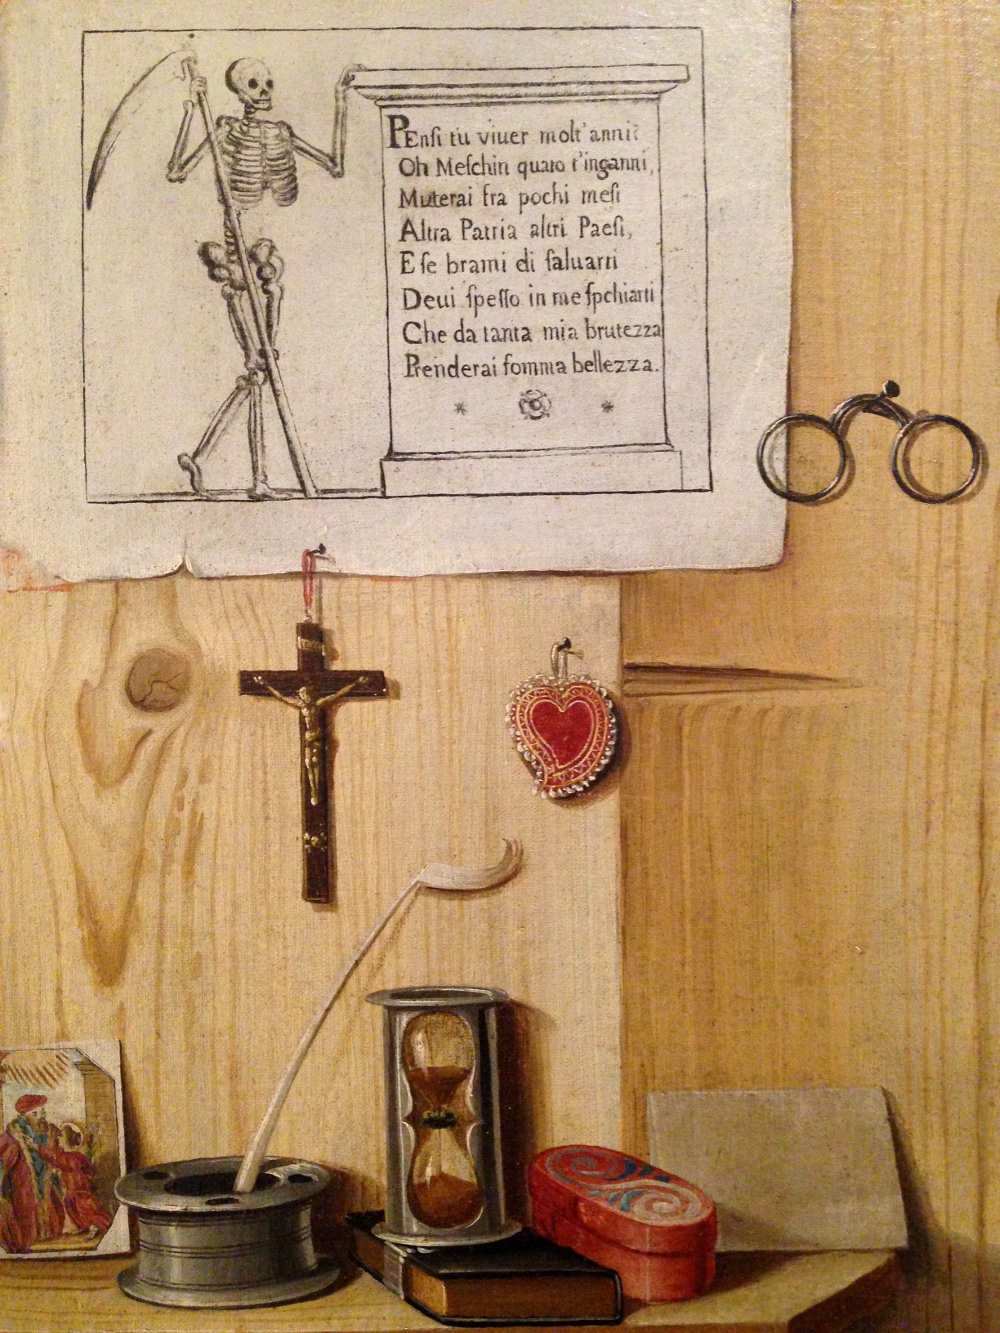 PEnſi tu viuer molt'anni?
Oh Meſchin quato t'inganni,
Muterai fra pochi meſi
Altra Patria altri Paeſi,
E ſe brami di ſaluarti
Deui ſpeſſo in me ſpchiarti
Che da tanta mia brutezza
Prenderai ſomma bellezza.